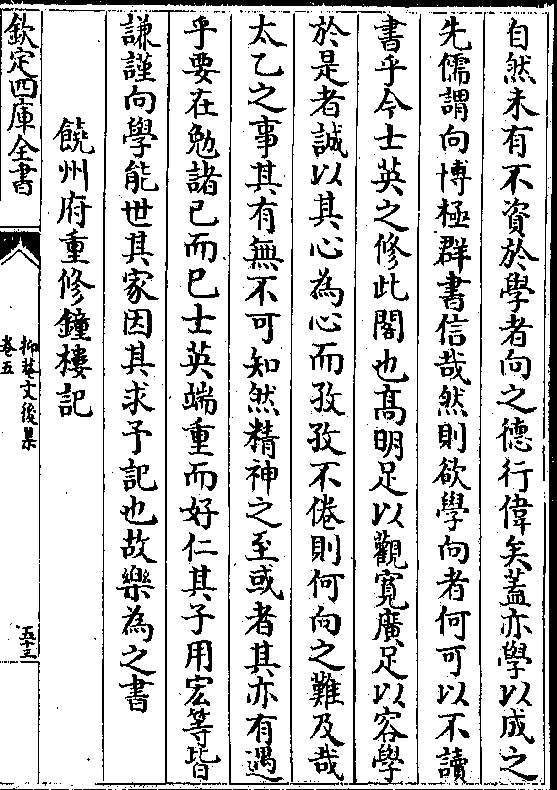 自然未有不資於學者向之德行偉矣蓋亦學以成之
先儒謂向博極群書信哉然則欲學向者何可以不讀
書乎今士英之修此閣也髙明足以觀寛廣足以容學
於是者誠以其心為心而孜孜不倦則何向之難及哉
太乙之事其有無不可知然精神之至或者其亦有遇
乎要在勉諸已而巳士英端重而好仁其子用宏等皆
謙謹向學能世其家因其求予記也故樂為之書
饒州府重修鐘樓記
欽定四庫全書
抑菴文後集
卷五
五十三